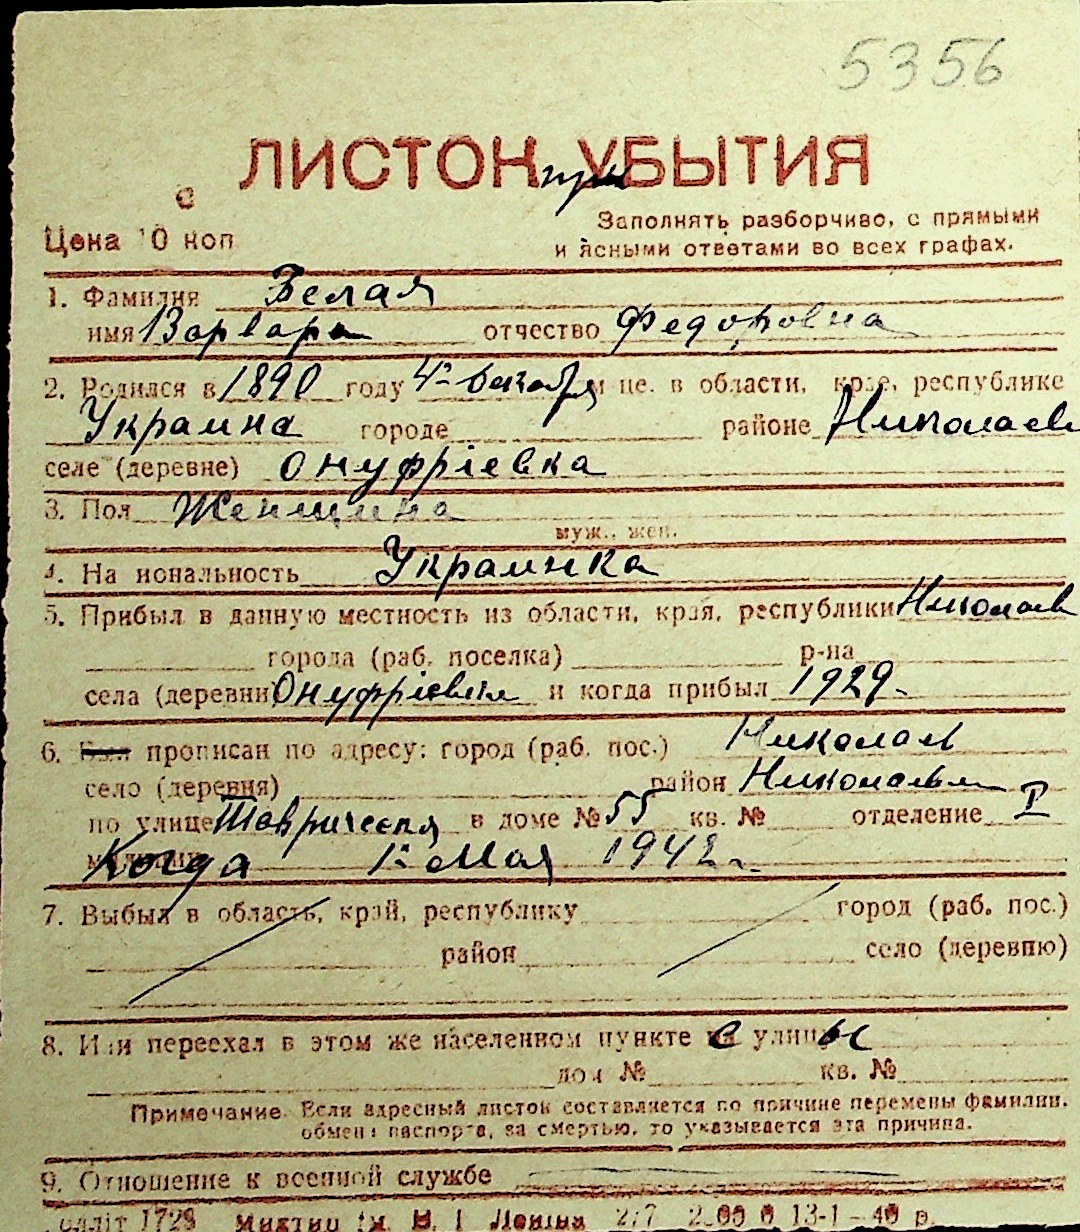 5356
ЛИСТОК при УБЫТИЯ
Цена 10 коп
Заполнять разборчиво, с прямыми
и ясными ответами во всех графах.
1. Фамилия Белая
имя Варвара отчество Федоровна
2. Родился в 1890 году 4го декабря м-це. в области, крае, республике
Украина городе районе Николаев
селе (деревне) Онуфріевка
3. Пол Женщина
муж., жен.
4. Национальность Украинка
5. Прибыл в данную местность из области, края, республики Николаев
города (раб. поселка) р-на
села (деревни) Онуфріевки и когда прибыл 1929.
6. Был прописан по адресу: город (раб. пос.) Николаев
село (деревня) район Николаевск
по улице Таврическая в доме № 55 кв. № отделение I
Когда 1го Мая 1942 г.
7. Выбыл в область, край, республику город (раб. пос.)
район село (деревню)
8. Или переехал в этом же населенном пункте с улицы
дом № кв. №
Примечание. Если адресный листок составляется по причине перемены фамилии,
обмена паспорта, за смертью, то указывается эта причина.
9. Отношение к военной службе
1729 ім. В. І Леніна 2/7 13-1—40 р.